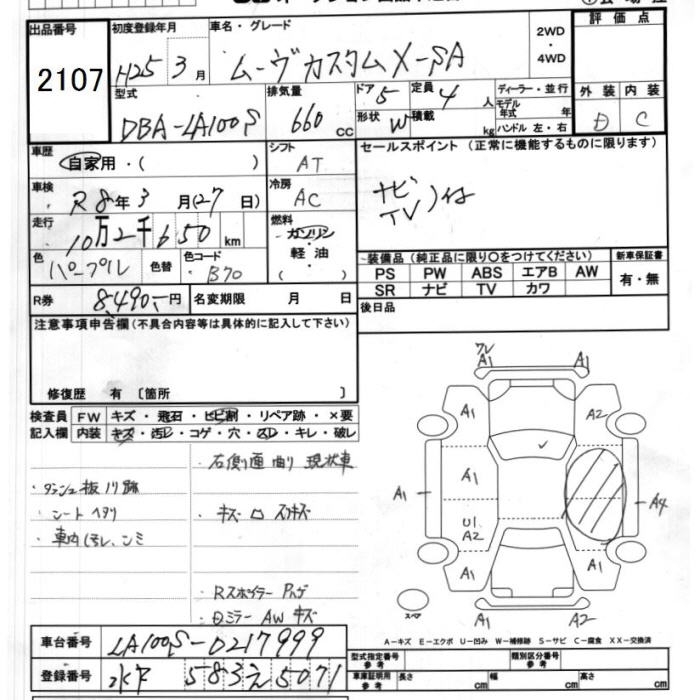 出品番号 2107
初度登録年月 H25年3月
車名・グレード ムーヴカスタムX-SA
2WD・4WD
評価点
外装 内装
D C
型式 DBA-LA100S
排気量 660cc
ドア 5 定員 4人
形状 W 積載 kg
ディーラー・並行
モデル年式 年
ハンドル 左・右
車歴 自家用・( )
シフト AT
セールスポイント (正常に機能するものに限ります)
ナビ
TV )付
車検 R8年3月(27日)
冷房 AC
走行 10万2千650km
燃料 ガソリン・軽油・( )
色 パープル 色替 色コード B70
装備品 (純正品に限り○をつけてください) 新車保証書
PS PW ABS エアB AW 有・無
SR ナビ TV カワ
R券 8,490-円 名変期限 月 日
後日品
注意事項申告欄(不具合内容等は具体的に記入して下さい)
修復歴 有 〔箇所 〕
検査員 FW キズ・飛石・ヒビ割・リペア跡・×要
記入欄 内装 キズ・汚レ・コゲ・穴・スレ・キレ・破レ
現状車
ダッシュ板ノリ跡
シートヘタリ
車内汚レ、シミ
キズ
Rスポイラー
ミラー AWキズ
ワレ
A1 A1
A1 A2
A1 A1 A4
U1
A2
A1 A1
スペア
A1 A2
A-キズ E-エクボ U-凹み W-補修跡 S-サビ C-腐食 XX-交換済
車台番号 LA100S-0217999
登録番号 水戸 583 え 5071
型式指定番号 参考 類別区分番号 参考
車庫証明用 参考 長さ cm 幅 cm 高さ cm